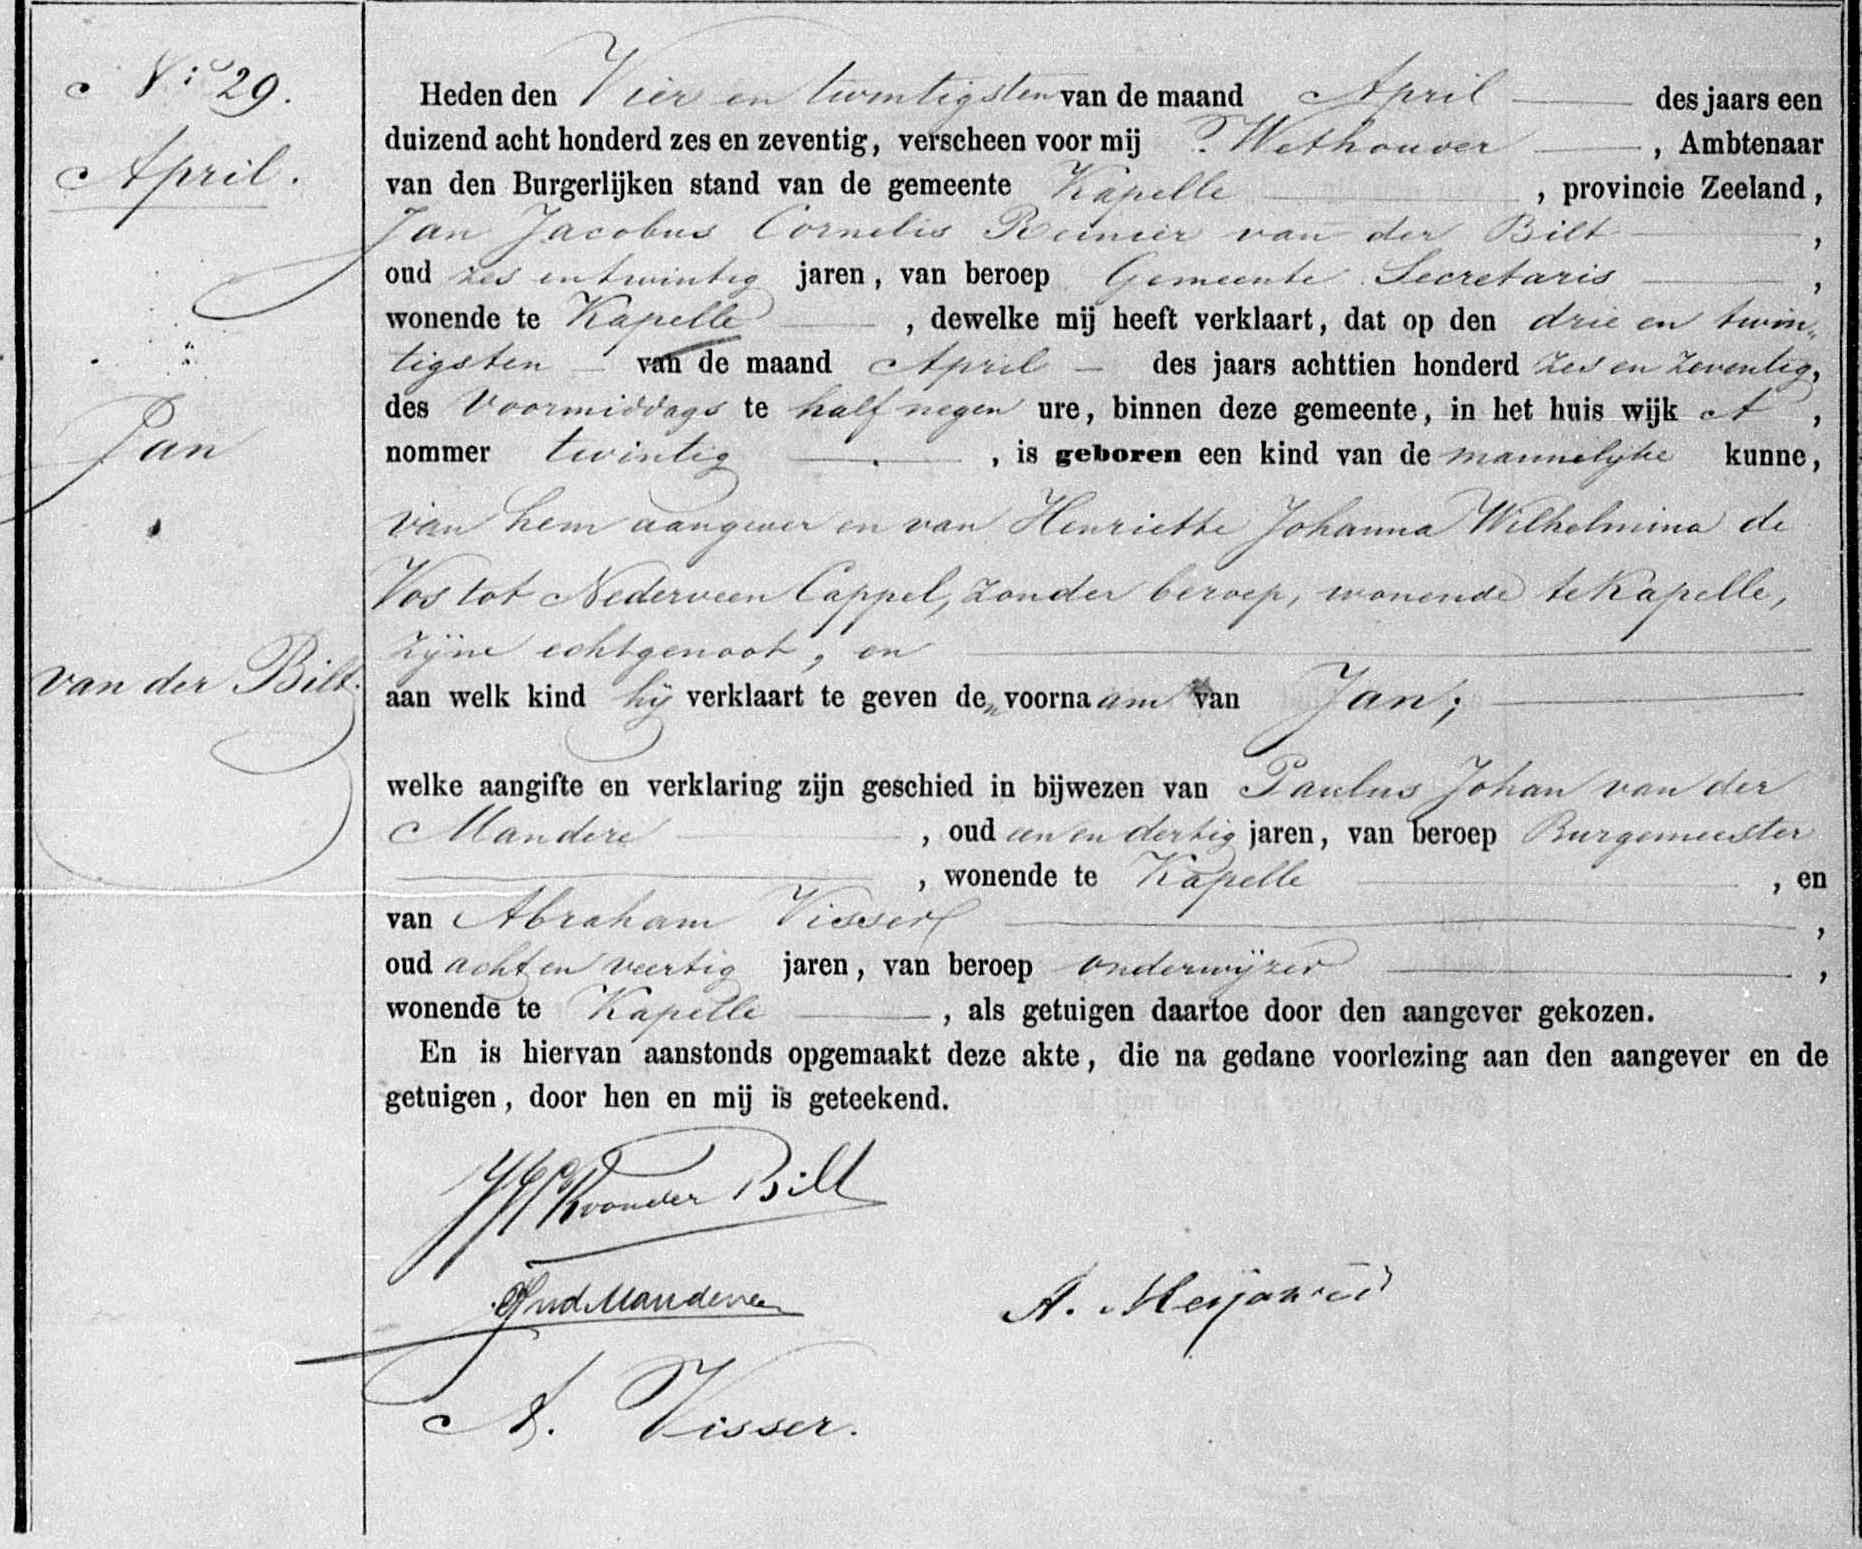 No 29.
April.
Jan
van der Bilt.
Heden den Vier en twintigsten van de maand April des jaars een
duizend acht honderd zes en zeventig, verscheen voor mij Wethouder, Ambtenaar
van den Burgerlijken stand van de gemeente Kapelle, provincie Zeeland,
Jan Jacobus Cornelis Reinier van der Bilt,
oud zes en twintig jaren, van beroep Gemeente Secretaris,
wonende te Kapelle, dewelke mij heeft verklaart, dat op den drie en twin„
tigsten van de maand April des jaars achttien honderd zes en zeventig,
des Voormiddags te half negen ure, binnen deze gemeente, in het huis wijk A,
nommer twintig, is geboren een kind van de mannelijke kunne,
van hem aangever en van Henriette Johanna Wilhelmina de
Vos tot Nederveen Cappel, zonder beroep, wonende te Kapelle,
zijne echtgenoot, en
aan welk kind hij verklaart te geven de„ voornaam van Jan;
welke aangifte en verklaring zijn geschied in bijwezen van Paulus Johan van der
Mandere, oud een en dertig jaren, van beroep Burgemeester
, wonende te Kapelle, en
van Abraham Visser,
oud acht en veertig jaren, van beroep onderwijzer,
wonende te Kapelle, als getuigen daartoe door den aangever gekozen.
En is hiervan aanstonds opgemaakt deze akte, die na gedane voorlezing aan den aangever en de
getuigen, door hen en mij is geteekend.
JJCR van der Bilt
vd Mandere
A.
A. Visser.